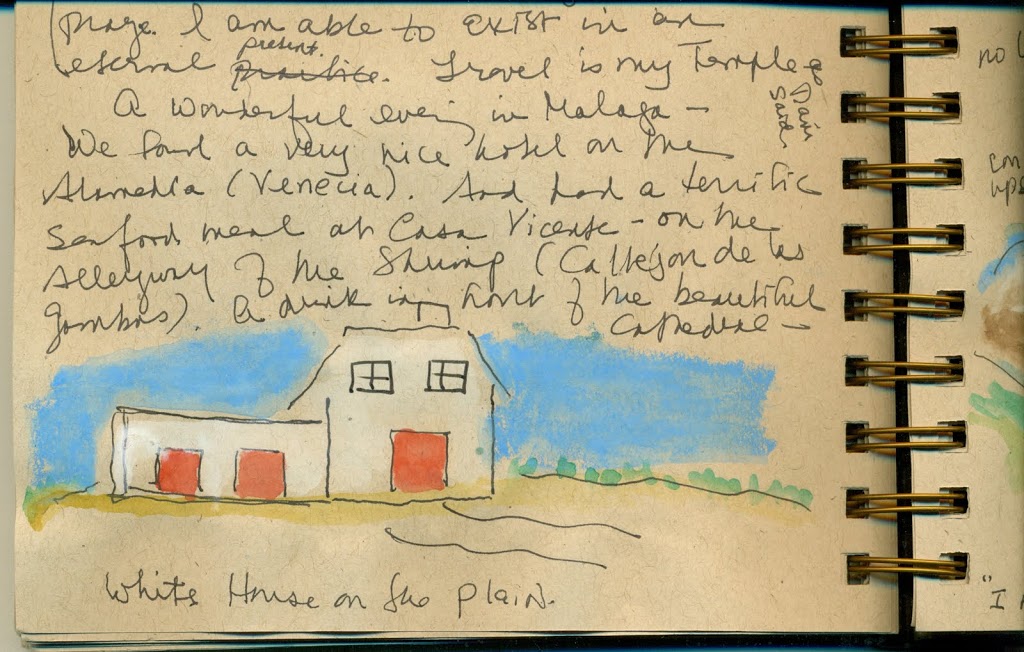 I am able to exist in an
eternal present. practice. Travel is my Temple as
Dan
said
A wonderful evening in Malaga –
We found a very nice hotel on the
Alameda (Venecia). And had a terrific
seafood meal at Casa Vicente – on the
Alleyway of the Shrimp (Callejon de las
gambas). A drink in front of the beautiful
Cathedral –
White House on the plain.
no
con
ups
"I